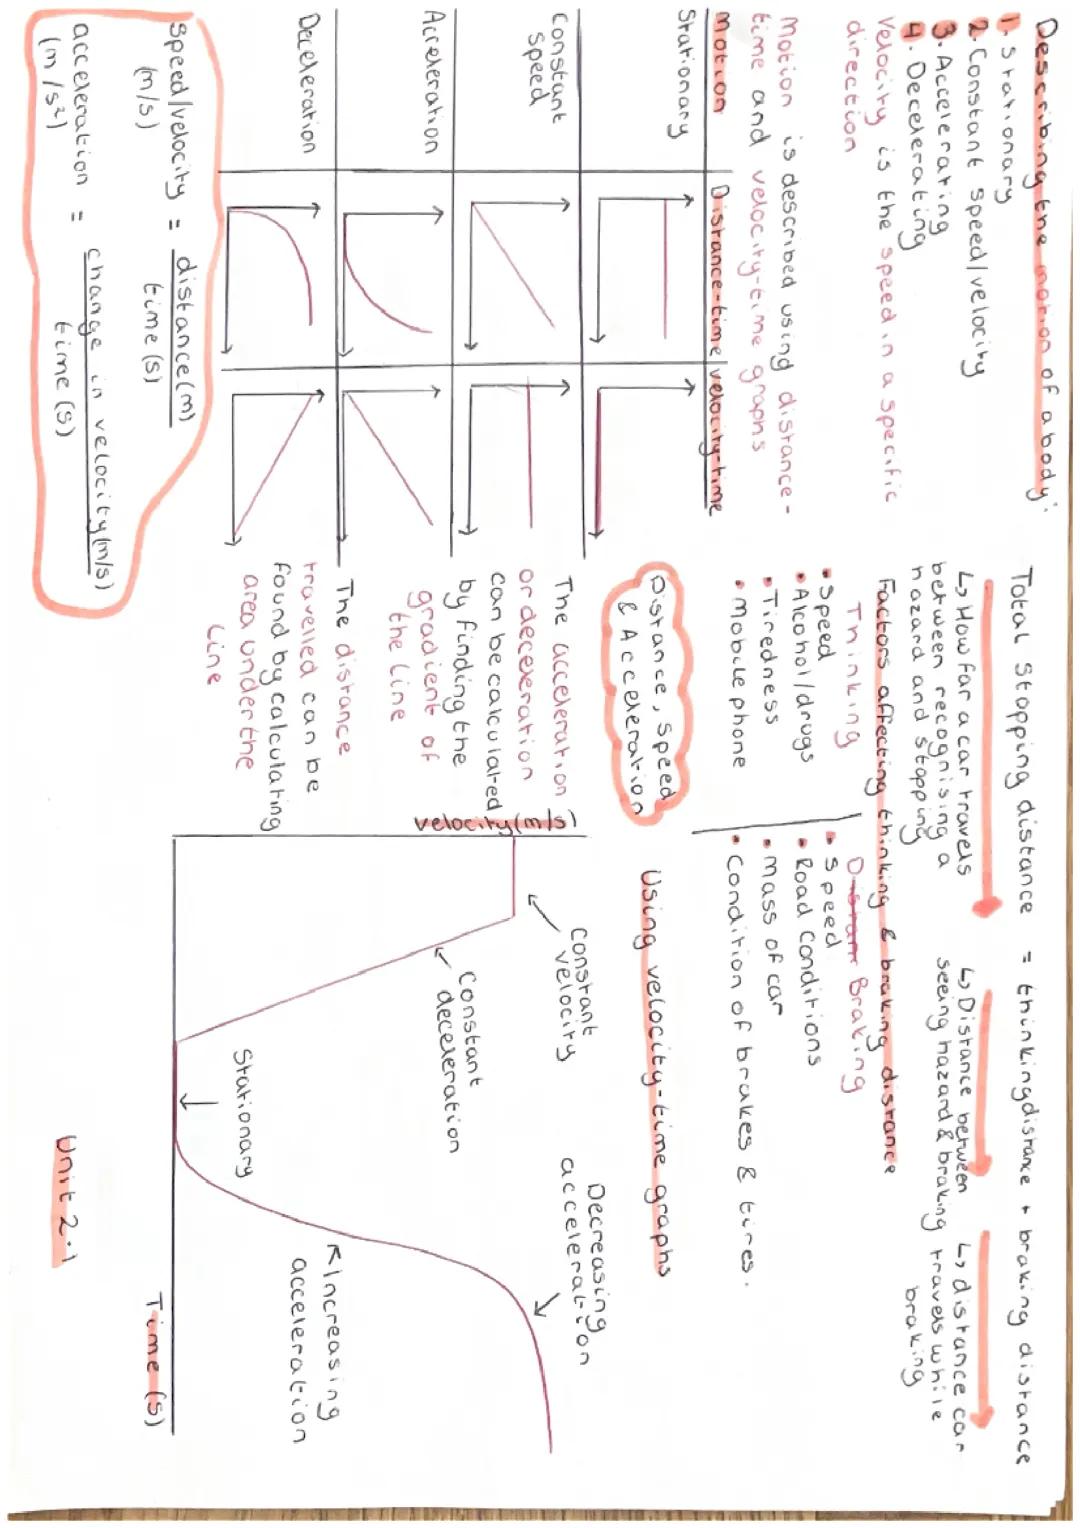 Describing the motion of a body:
1. Stationary
2. Constant speed/velocity
3. Accelerating
4. Decelerating
Velocity is the speed in a specific
direction
Motion is described using distance-
time and velocity-time graphs
Motion
Distance-time
velocity-time
Stationary
Constant
speed
Acceleration
Deceleration
speed/velocity = distance(m)
(m/s)
time (s)
acceleration = change in velocity (m/s)
(m/s²)
time (s)
Total stopping distance = thinking distance + braking distance
↳ How far a car travels
between recognising a
hazard and stopping
↳ Distance between
seeing hazard & braking
↳ distance car
travels while
braking
Factors affecting thinking & braking distance
Thinking
• Speed
• Alcohol/drugs
• Tiredness
• Mobile phone
Distanr Braking
• Speed
• Road Conditions
• Mass of car
• Condition of brakes & tires.
Distance, Speed
& Acceleration
The acceleration
or deceleration
can be calculated
by finding the
gradient of
the line
The distance
travelled can be
found by calculating
area under the
line
Using velocity-time graphs
velocity (m/s)
Constant
velocity
Constant
deceleration
Stationary
Decreasing
acceleration
Increasing
acceleration
Time (s)
Unit 2.1